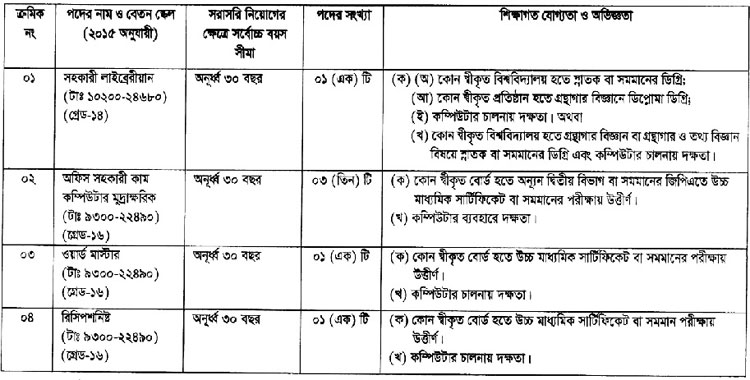 ক্রমিক নং | পদের নাম ও বেতন স্কেল (২০১৫ অনুযায়ী) | সরাসরি নিয়োগের ক্ষেত্রে সর্বোচ্চ বয়স সীমা | পদের সংখ্যা | শিক্ষাগত যোগ্যতা ও অভিজ্ঞতা
০১ | সহকারী লাইব্রেরীয়ান | অনূর্ধ্ব ৩০ বছর | ০১ (এক) টি | (ক) (অ) কোন স্বীকৃত বিশ্ববিদ্যালয় হতে স্নাতক বা সমমানের ডিগ্রি;
(টাঃ ১০২০০-২৪৬৮০) | (আ) কোন স্বীকৃত প্রতিষ্ঠান হতে গ্রন্থাগার বিজ্ঞানে ডিপ্লোমা ডিগ্রি;
(গ্রেড-১৪) | (ই) কম্পিউটার চালনায় দক্ষতা। অথবা
(খ) কোন স্বীকৃত বিশ্ববিদ্যালয় হতে গ্রন্থাগার বিজ্ঞান বা গ্রন্থাগার ও তথ্য বিজ্ঞান
বিষয়ে স্নাতক বা সমমানের ডিগ্রি এবং কম্পিউটার চালনায় দক্ষতা।
০২ | অফিস সহকারী কাম | অনূর্ধ্ব ৩০ বছর | ০৩ (তিন) টি | (ক) কোন স্বীকৃত বোর্ড হতে অন্যূন দ্বিতীয় বিভাগ বা সমমানের জিপিএতে উচ্চ
কম্পিউটার মুদ্রাক্ষরিক | মাধ্যমিক সার্টিফিকেট বা সমমানের পরীক্ষায় উত্তীর্ণ।
(টাঃ ৯৩০০-২২৪৯০) | (খ) কম্পিউটার ব্যবহারে দক্ষতা।
(গ্রেড-১৬)
০৩ | ওয়ার্ড মাস্টার | অনূর্ধ্ব ৩০ বছর | ০১ (এক) টি | (ক) কোন স্বীকৃত বোর্ড হতে উচ্চ মাধ্যমিক সার্টিফিকেট বা সমমানের পরীক্ষায়
(টাঃ ৯৩০০-২২৪৯০) | উত্তীর্ণ।
(গ্রেড-১৬) | (খ) কম্পিউটার চালনায় দক্ষতা।
০৪ | রিসিপশনিষ্ট | অনূর্ধ্ব ৩০ বছর | ০১ (এক) টি | (ক) কোন স্বীকৃত বোর্ড হতে উচ্চ মাধ্যমিক সার্টিফিকেট বা সমমান পরীক্ষায়
(টাঃ ৯৩০০-২২৪৯০) | উত্তীর্ণ।
(গ্রেড-১৬) | (খ) কম্পিউটার চালনায় দক্ষতা।